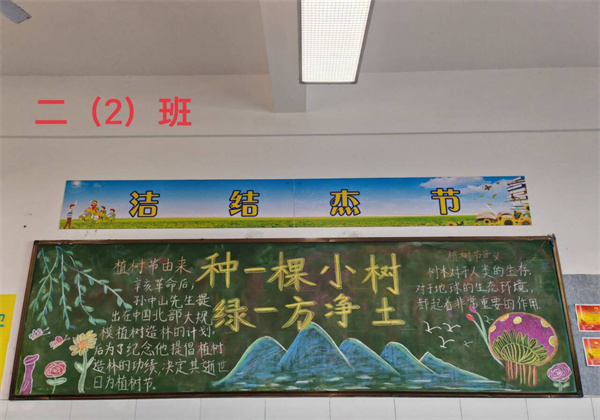 二（2）班
洁 结 杰 节
植树节由来
辛亥革命后，
孙中山先生提
出在中国北部大规
模植树造林的计划，
后为了纪念他提倡植树
造林的功绩，决定其逝世
日为植树节。
种一棵小树
绿一方净土
植树节意义
树木对于人类的生存，
对于地球的生态环境，
都起着非常重要的作用